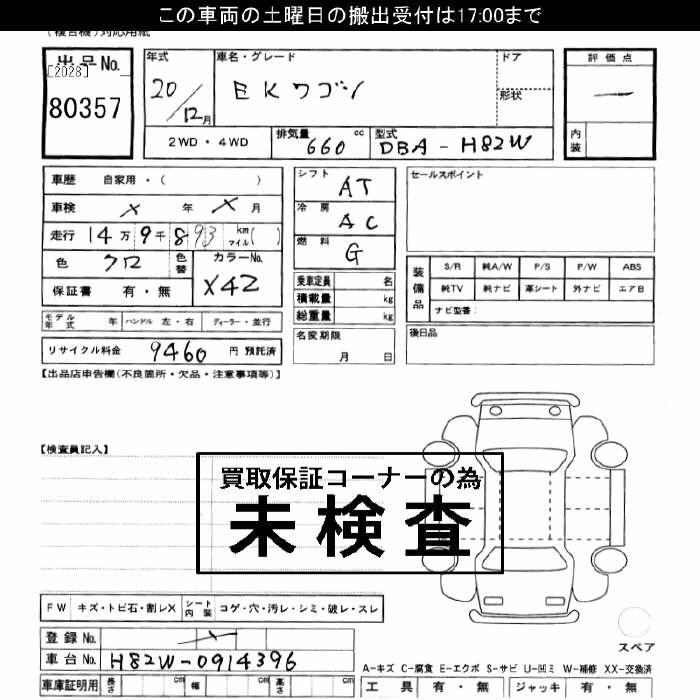 この車両の土曜日の搬出受付は17:00まで
出品No.
[2028]
80357
年式
20/12月
車名・グレード
EKワゴン
ドア
形状
評価点
一
内装
2WD・4WD
排気量 660 cc
型式 DBA-H82W
車歴 自家用・( )
車検 × 年 × 月
走行 14万9千893 km マイル( )
色 クロ
色替
カラーNo. X42
保証書 有・無
シフト AT
冷房 AC
燃料 G
セールスポイント
乗車定員 名
積載量 kg
総重量 kg
装備品
S/R 純A/W P/S P/W ABS
純TV 純ナビ 革シート 外ナビ エアB
ナビ型番:
モデル年式 年 ハンドル 左・右 ディーラー・並行
名変期限 月 日
後日品
リサイクル料金 9460 円 預託済
【出品店申告欄(不良箇所・欠品・注意事項等)】
【検査員記入】
買取保証コーナーの為
未検査
FW キズ・トビ石・割レX シート内装 コゲ・穴・汚レ・シミ・破レ・スレ
登録No. ×
車台No. H82W-0914396
車庫証明用 長さ cm 幅 cm 高さ cm
スペア
A-キズ C-腐食 E-エクボ S-サビ U-凹ミ W-補修 XX-交換済
工具 有・無 ジャッキ 有・無